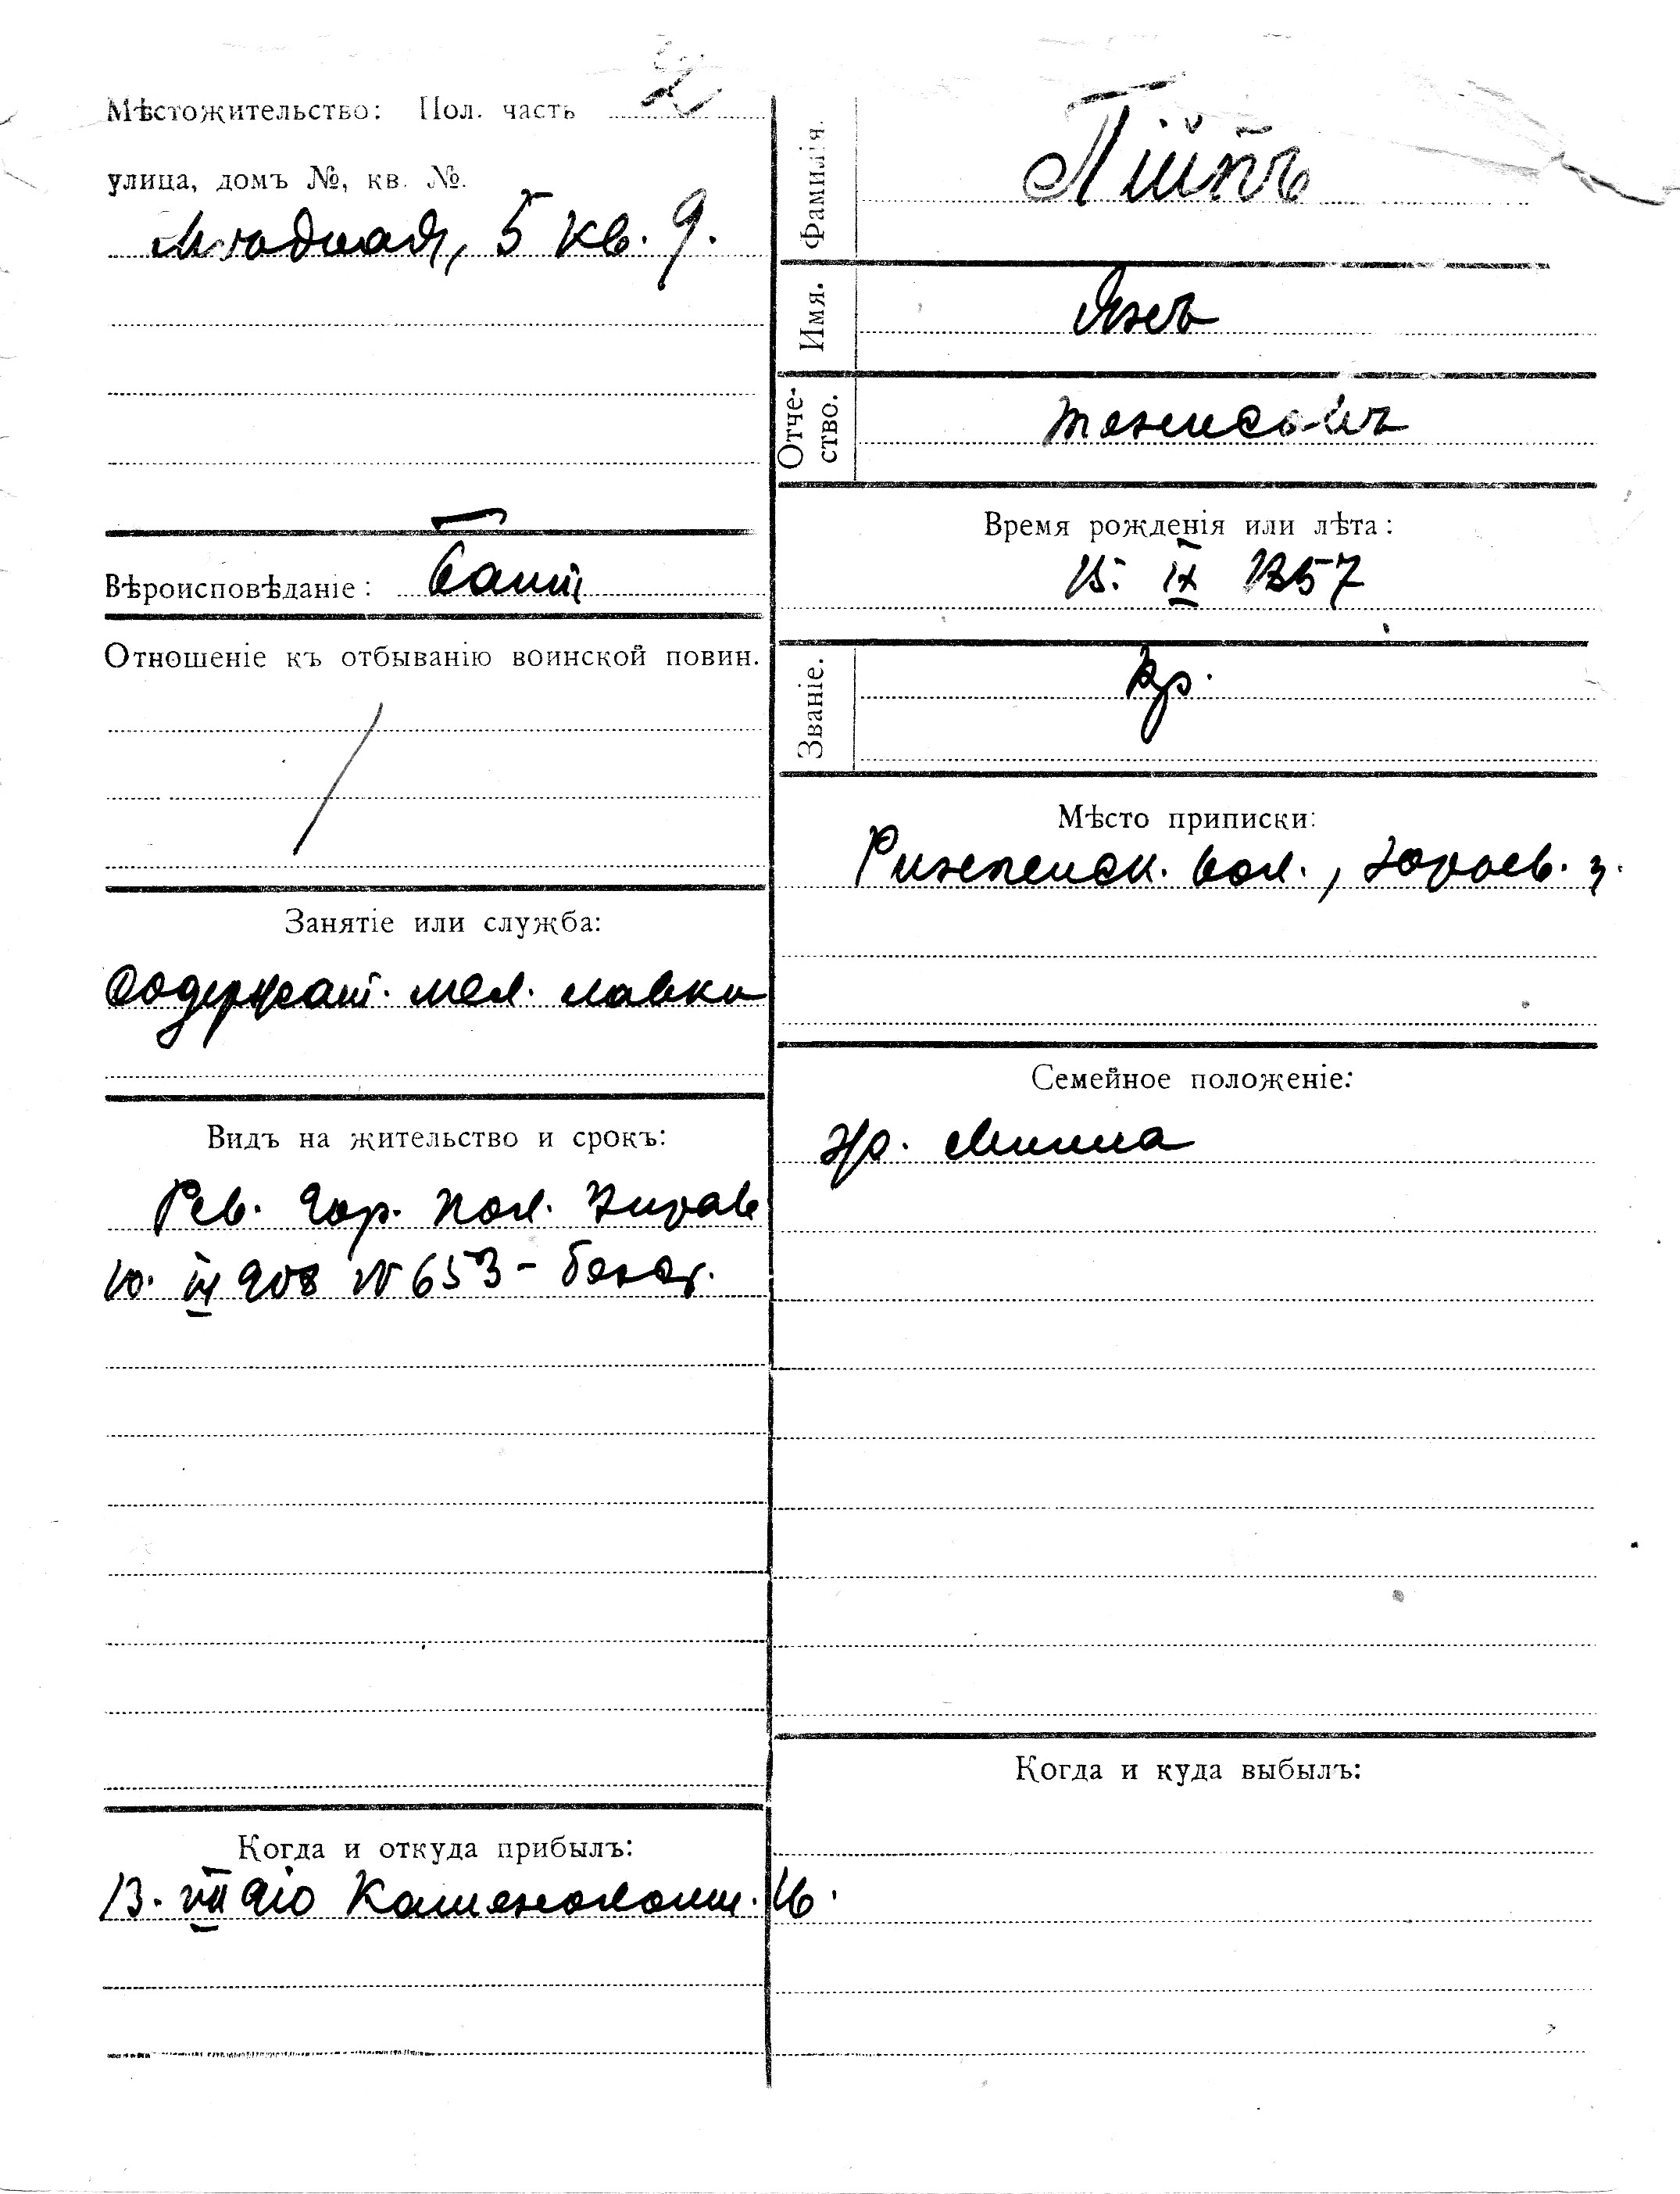 Мѣстожительство: Пол. часть 2
улица, домъ №, кв. №.
5 кв. 9.
Вѣроисповѣданіе:
Отношеніе къ отбыванію воинской повин.
Занятіе или служба:
Содержат. мел. лавки
Видъ на жительство и срокъ:
Рев. Гор. Пол. Управ
10. III 908 № 653 –
Когда и откуда прибылъ:
13. VII 910
Фамилія. Пійпъ
Имя. Янъ
Отче-
ство.
Время рожденія или лѣта:
15. IX 1857
Званіе. Кр.
Мѣсто приписки:
вол., Юрьев. у.
Семейное положеніе:
Жр. Минна
Когда и куда выбылъ: